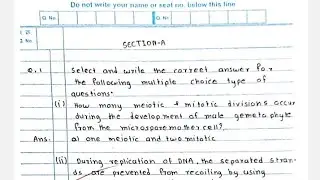 Do not write your name or seat no. below this line
Q. No.
Q. No.
SECTION-A
Q.1 Select and write the correct answer for
the following multiple choice type of
questions.
(i) How many meiotic & mitotic divisions occur
during the development of male gametophyte
from the microspore mother cell?
Ans. a) one meiotic and two mitotic
(ii) During replication of DNA, the separated stra-
nds are prevented from recoiling by using